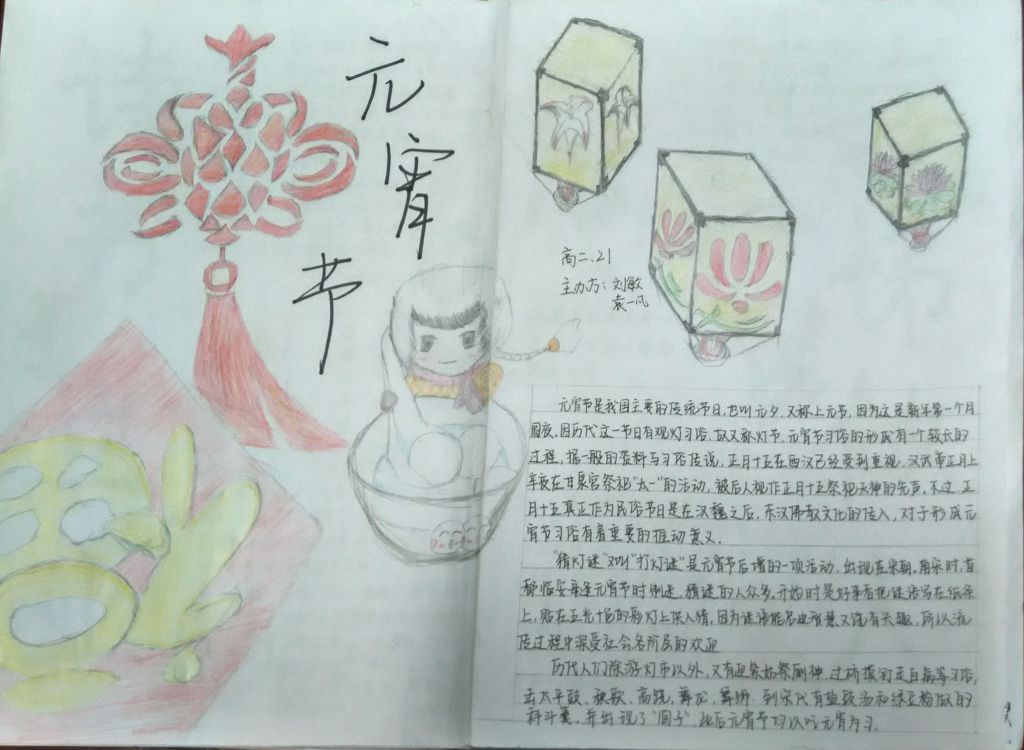 元
宵
节
高二.21
主办方:刘敏
袁一凡
元宵节是我国主要的传统节日,也叫元夕,又称上元节,因为这是新年第一个月
圆夜,因历代这一节日有观灯习俗,故又称灯节.元宵节习俗的形成有一个较长的
过程,据一般的资料与习俗传说,正月十五在西汉已经受到重视,汉武帝正月上
辛夜在甘泉宫祭祀"太一"的活动,被后人视作正月十五祭祀天神的先声,不过,正
月十五真正作为民俗节日是在汉魏之后,东汉佛教文化的传入,对于形成元
宵节习俗有着重要的推动意义.
"猜灯谜"又叫"打灯谜"是元宵节后增的一项活动,出现在宋朝.南宋时,首
都临安每逢元宵节时制迷,猜谜的人众多.开始时是好事者把谜语写在纸条
上,贴在五光十色的彩灯上供人猜,因为谜语能启迪智慧又饶有兴趣,所以流
传过程中深受社会各阶层的欢迎
历代人们除游灯市以外,又有迎紫姑祭厕神、过桥摸钉走百病等习俗,
击太平鼓、秧歌、高跷、舞龙、舞狮.到宋代有盐豉汤和绿豆粉做的
科斗羹,并出现了"圆子"此后元宵节均以吃元宵为习.